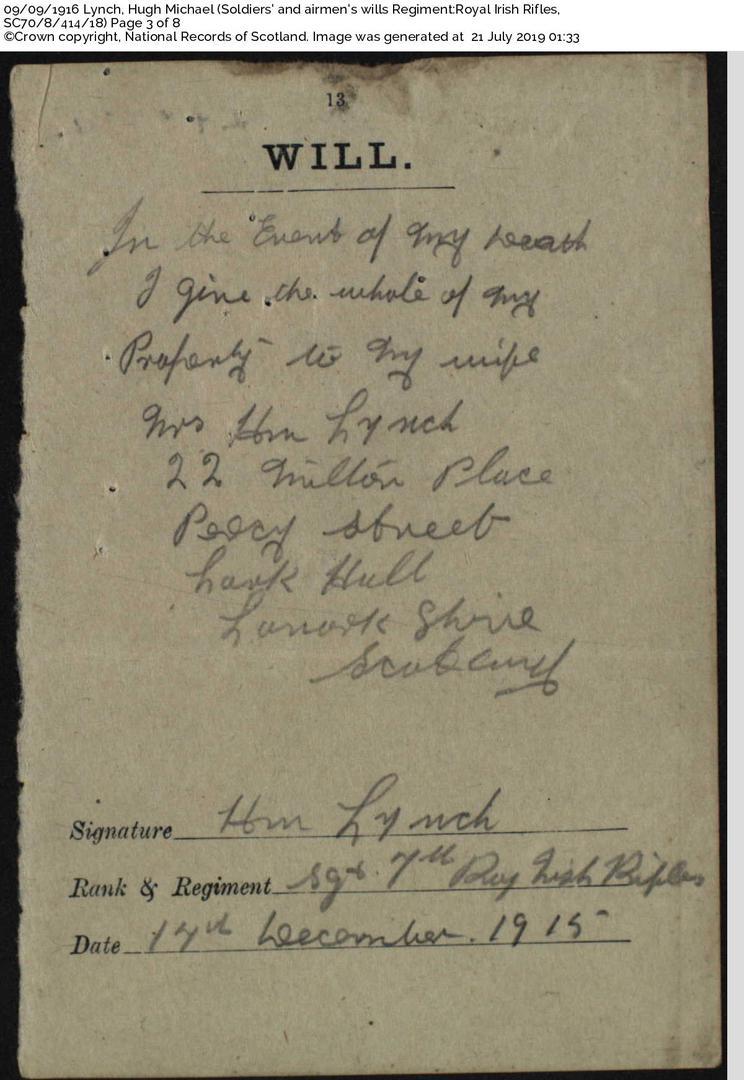 09/09/1916 Lynch, Hugh Michael (Soldiers' and airmen's wills Regiment:Royal Irish Rifles,
SC70/8/414/18) Page 3 of 8
©Crown copyright, National Records of Scotland. Image was generated at 21 July 2019 01:33
13
WILL.
In the Event of my Death
I give the whole of my
Property to my wife
Mrs Hm Lynch
22 Milton Place
Percy Street
Lark Hall
Lanark Shire
Scotland
Signature Hm Lynch
Rank & Regiment Sgt. 7th Roy Irish Rifles
Date 14th December. 1915